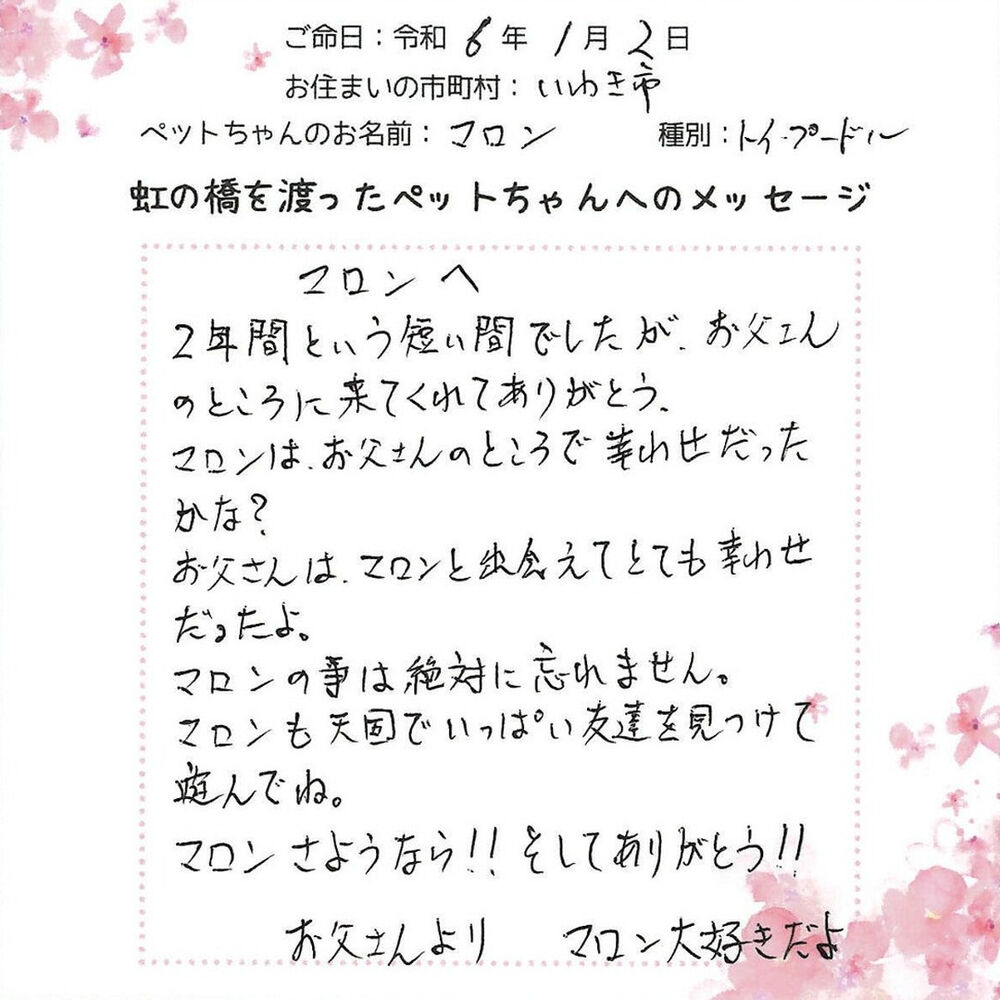 ご命日：令和6年1月2日
お住まいの市町村：いわき市
ペットちゃんのお名前：マロン 種別：トイ・プードル
虹の橋を渡ったペットちゃんへのメッセージ
マロンへ
2年間という短い間でしたが、お父さん
のところに来てくれてありがとう。
マロンは、お父さんのところで幸わせだった
かな？
お父さんは、マロンと出会えてとても幸わせ
だったよ。
マロンの事は絶対に忘れません。
マロンも天国でいっぱい友達を見つけて
遊んでね。
マロンさようなら!!そしてありがとう!!
お父さんより マロン大好きだよ